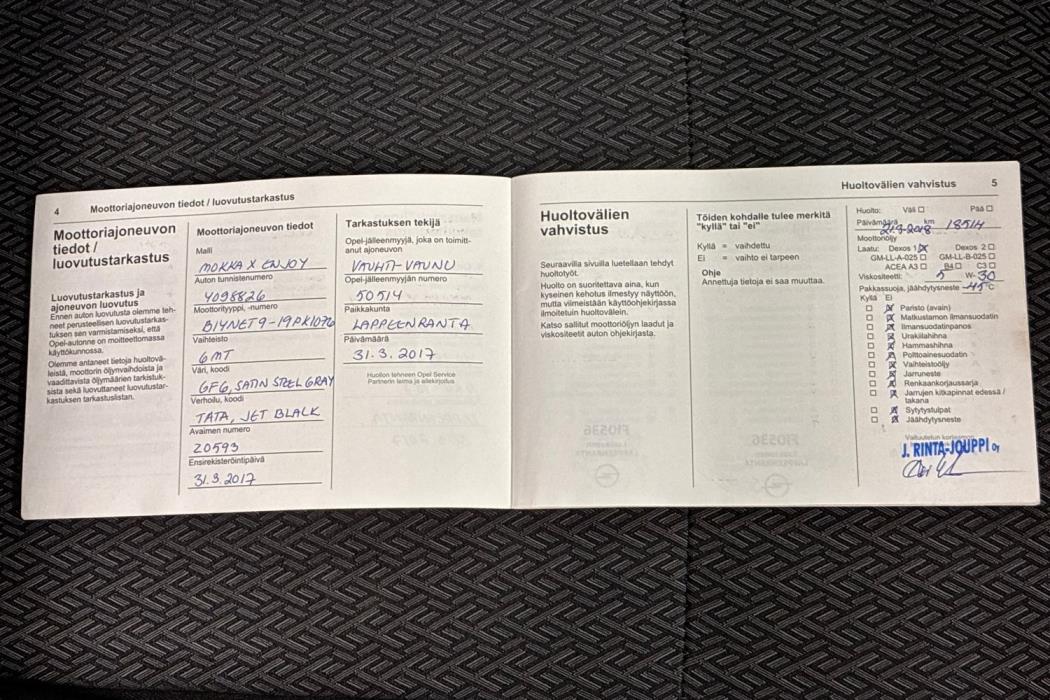 4 Moottoriajoneuvon tiedot / luovutustarkastus
Moottoriajoneuvon
tiedot /
luovutustarkastus
Luovutustarkastus ja
ajoneuvon luovutus
Ennen auton luovutusta olemme teh-
neet perusteellisen luovutustarkas-
tuksen sen varmistamiseksi, että
Opel-autonne on moitteettomassa
käyttökunnossa.
Olemme antaneet tietoja huoltovä-
leistä, moottorin öljynvaihdoista ja
vaadittavista öljymäärien tarkistuk-
sista sekä luovuttaneet luovutustar-
kastuksen tarkastuslistan.
Moottoriajoneuvon tiedot
Malli
MOKKA X ENJOY
Auton tunnistenumero
4098826
Moottorityyppi, -numero
B14NET9-19PK1076
Vaihteisto
6MT
Väri, koodi
GFG, SATIN STEEL GRAY
Verhoilu, koodi
TATA, JET BLACK
Avaimen numero
20593
Ensirekisteröintipäivä
31.3.2017
Tarkastuksen tekijä
Opel-jälleenmyyjä, joka on toimitt-
anut ajoneuvon
VAUHTI-VAUNU
Opel-jälleenmyyjän numero
50514
Paikkakunta
LAPPEENRANTA
Päivämäärä
31.3.2017
Huollon tehneen Opel Service
Partnerin leima ja allekirjoitus
Huoltovälien vahvistus 5
Huoltovälien
vahvistus
Seuraavilla sivuilla luetellaan tehdyt
huoltotyöt.
Huolto on suoritettava aina, kun
kyseinen kehotus ilmestyy näyttöön,
mutta viimeistään käyttöohjekirjassa
ilmoitetuin huoltovälein.
Katso sallitut moottoriöljyn laadut ja
viskositeetit auton ohjekirjasta.
Töiden kohdalle tulee merkitä
"kyllä" tai "ei"
Kyllä = vaihdettu
Ei = vaihto ei tarpeen
Ohje
Annettuja tietoja ei saa muuttaa.
Huolto: Väli Pää
Päivämäärä km 18514
Moottoriöljy
Laatu: Dexos 1 Dexos 2
GM-LL-A-025 GM-LL-B-025
ACEA A3 B4 C3
Viskositeetti: 5 W-30
Pakkassuoja, jäähdytysneste -45°C
Kyllä Ei
Paristo (avain)
Matkustamon ilmansuodatin
Ilmansuodatinpanos
Urakiilahihna
Hammashihna
Polttoainesuodatin
Vaihteistoöljy
Jarruneste
Renkaankorjaussarja
Jarrujen kitkapinnat edessä /
takana
Sytytystulpat
Jäähdytysneste
J. RINTA-JOUPPI Oy